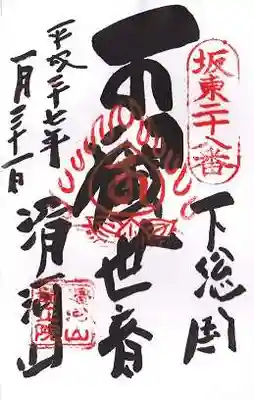 坂東二十八番
下総国
世音
滑河山
平成二十七年
一月三十一日